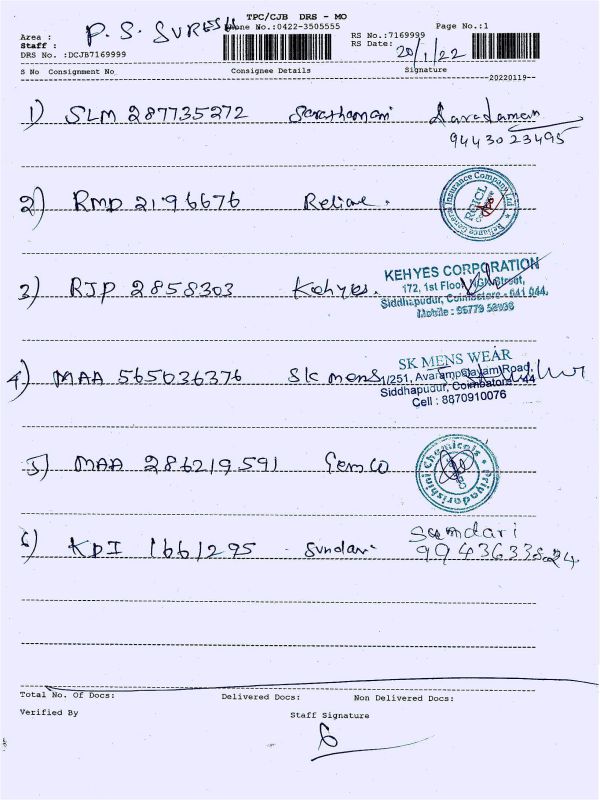 TPC/CJB DRS - MO
Phone No.:0422-3505555
Page No.:1
Area :
P. S. SURESH
RS No.:7169999
Staff :
RS Date: 20/1/22
DRS No. :DCJB7169999
S No Consignment No Consignee Details Signature
20220119
1) SLM 287735272 Sarathamani Saradamani
9443023495
2) RMD 2196676 Reliance.
Reliance General Insurance Company Ltd
RGICL
3) RJP 2858303 Kehyes.
KEHYES CORPORATION
172, 1st Floor, NGN Street,
Siddhapudur, Coimbatore - 641 044.
Mobile :
4) MAA 565036376 SK mens
SK MENS WEAR
1/251, Avarampalayam Road,
Siddhapudur, Coimbatore - 44
Cell : 8870910076
5) MAA 286219591 Gemco
Priyadarshini Chemicals
6) KDI 1661295 - Sundari
Sundari
Total No. Of Docs: Delivered Docs: Non Delivered Docs:
Verified By Staff Signature